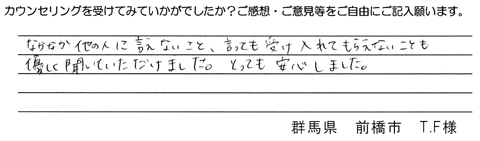 カウンセリングを受けてみていかがでしたか？ご感想・ご意見等をご自由にご記入願います。
なかなか他の人に言えないこと、言っても受け入れてもらえないことも
優しく聞いていただけました。とっても安心しました。
群馬県 前橋市 T.F様